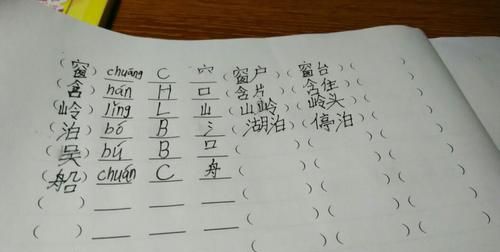 (窗) chuāng C 穴 (窗户)(窗台)( )
(含) hán H 口 (含片)(含住)( )
(岭) lǐng L 山 (山岭)(岭头)( )
(泊) bó B 氵 (湖泊)(停泊)( )
(吴) bú B 口 ( )( )( )
(船) chuán C 舟 ( )( )( )
( ) ( )( )( )
( ) ( )( )( )